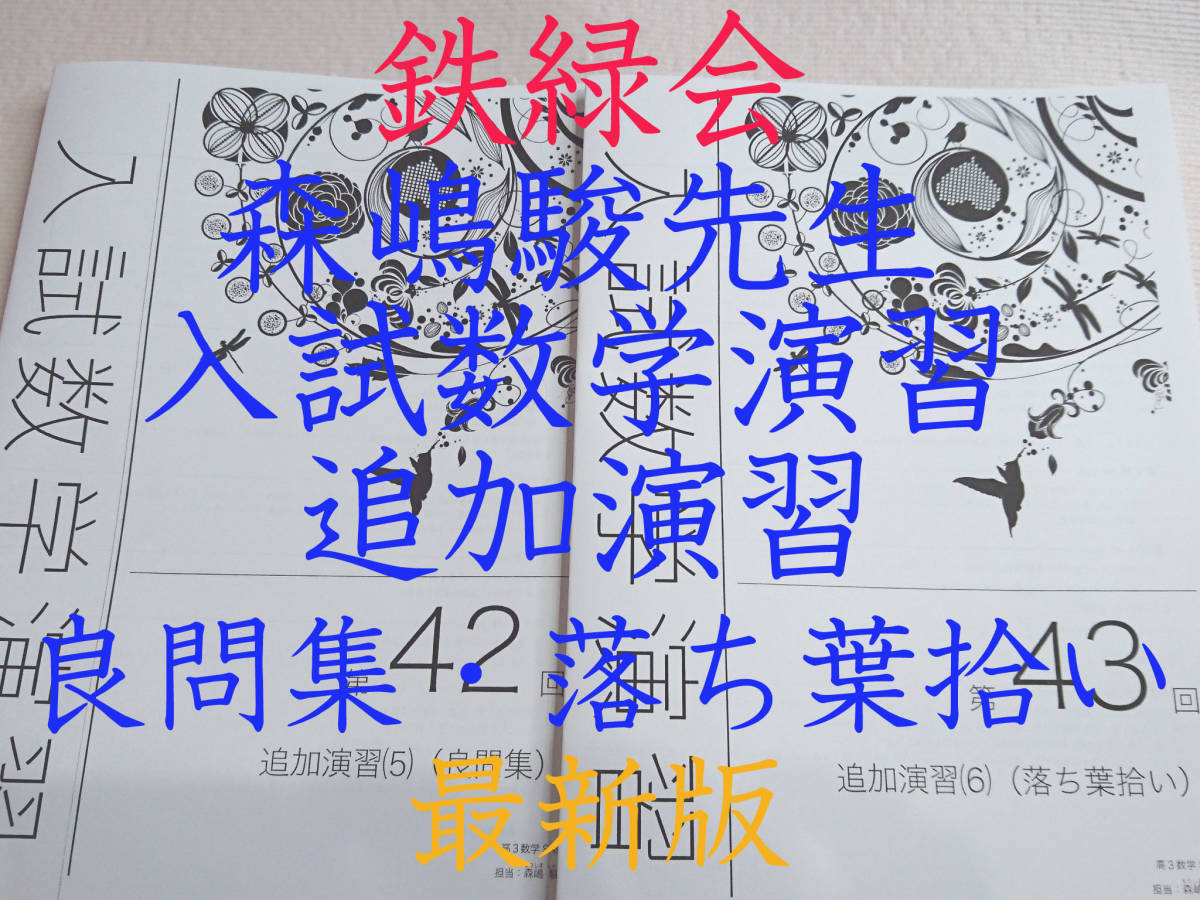 鉄緑会
森嶋駿先生
入試数学演習
追加演習
良問集・落ち葉拾い
最新版
入試数学演習
第42回
追加演習(5)(良問集)
高3数学
担当:森嶋
入試数学演習
第43回
追加演習(6)(落ち葉拾い)
高3数学
担当:森嶋